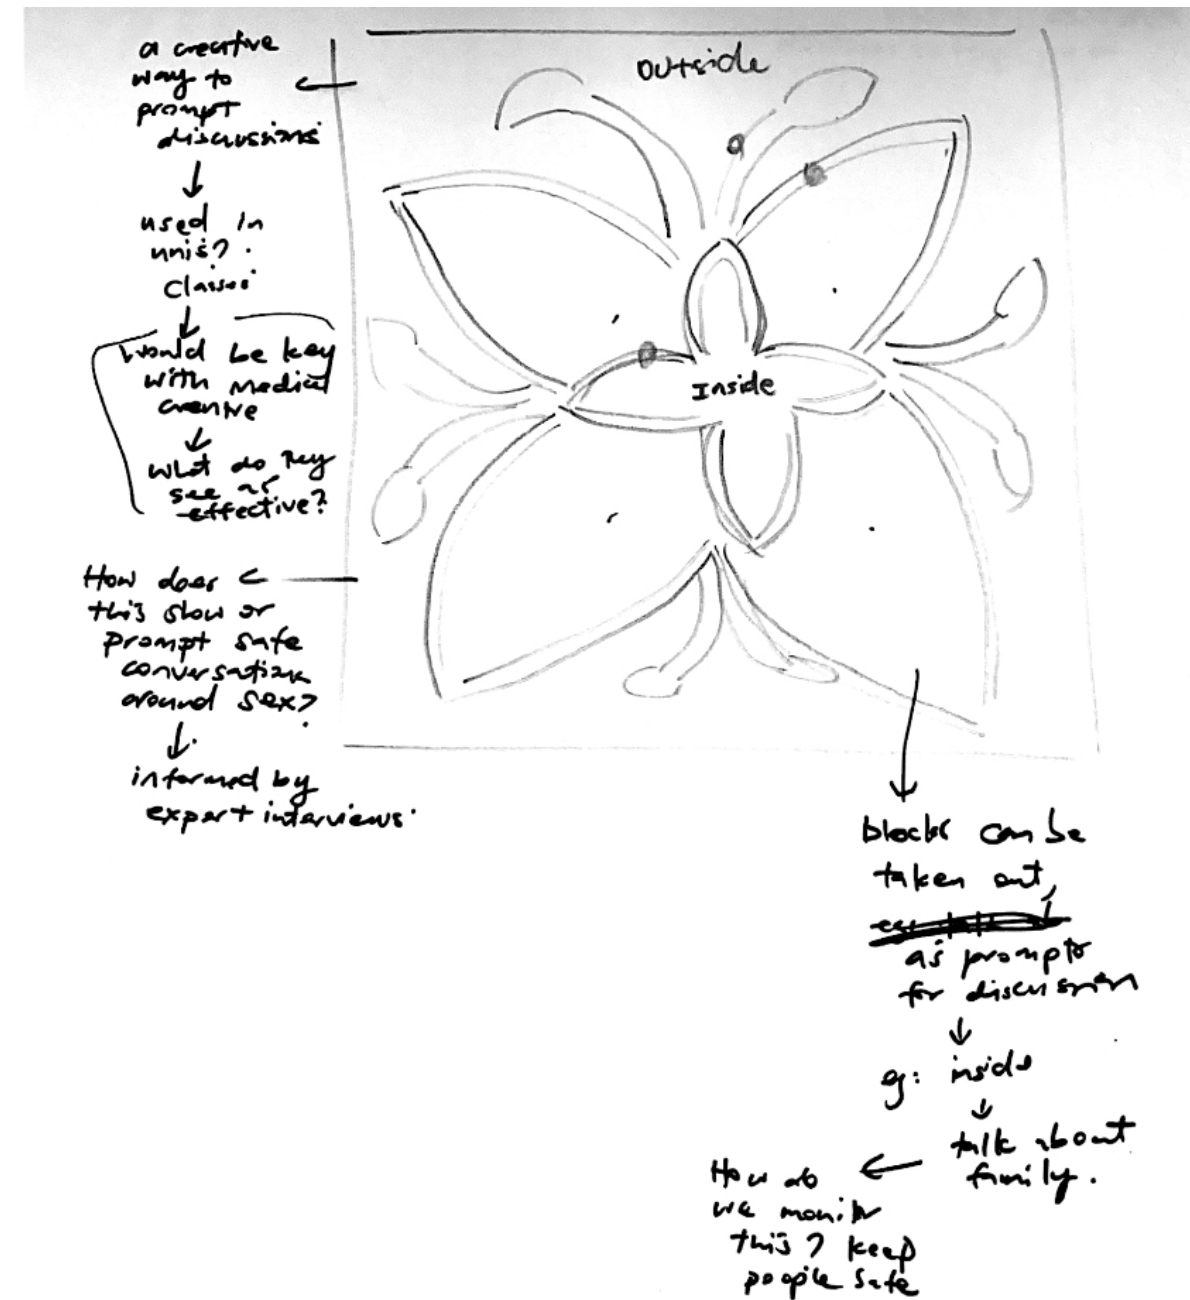 a creative
way to
prompt
discussions
used in
unis?
classes
would be key
with medical
centre
what do they
see as
effective?
How does
this slow or
prompt safe
conversations
around sex?
informed by
expert interviews.
Outside
Inside
blocks can be
taken out,
as prompts
for discussion
eg: inside
talk about
family.
How do
we monitor
this? keep
people safe